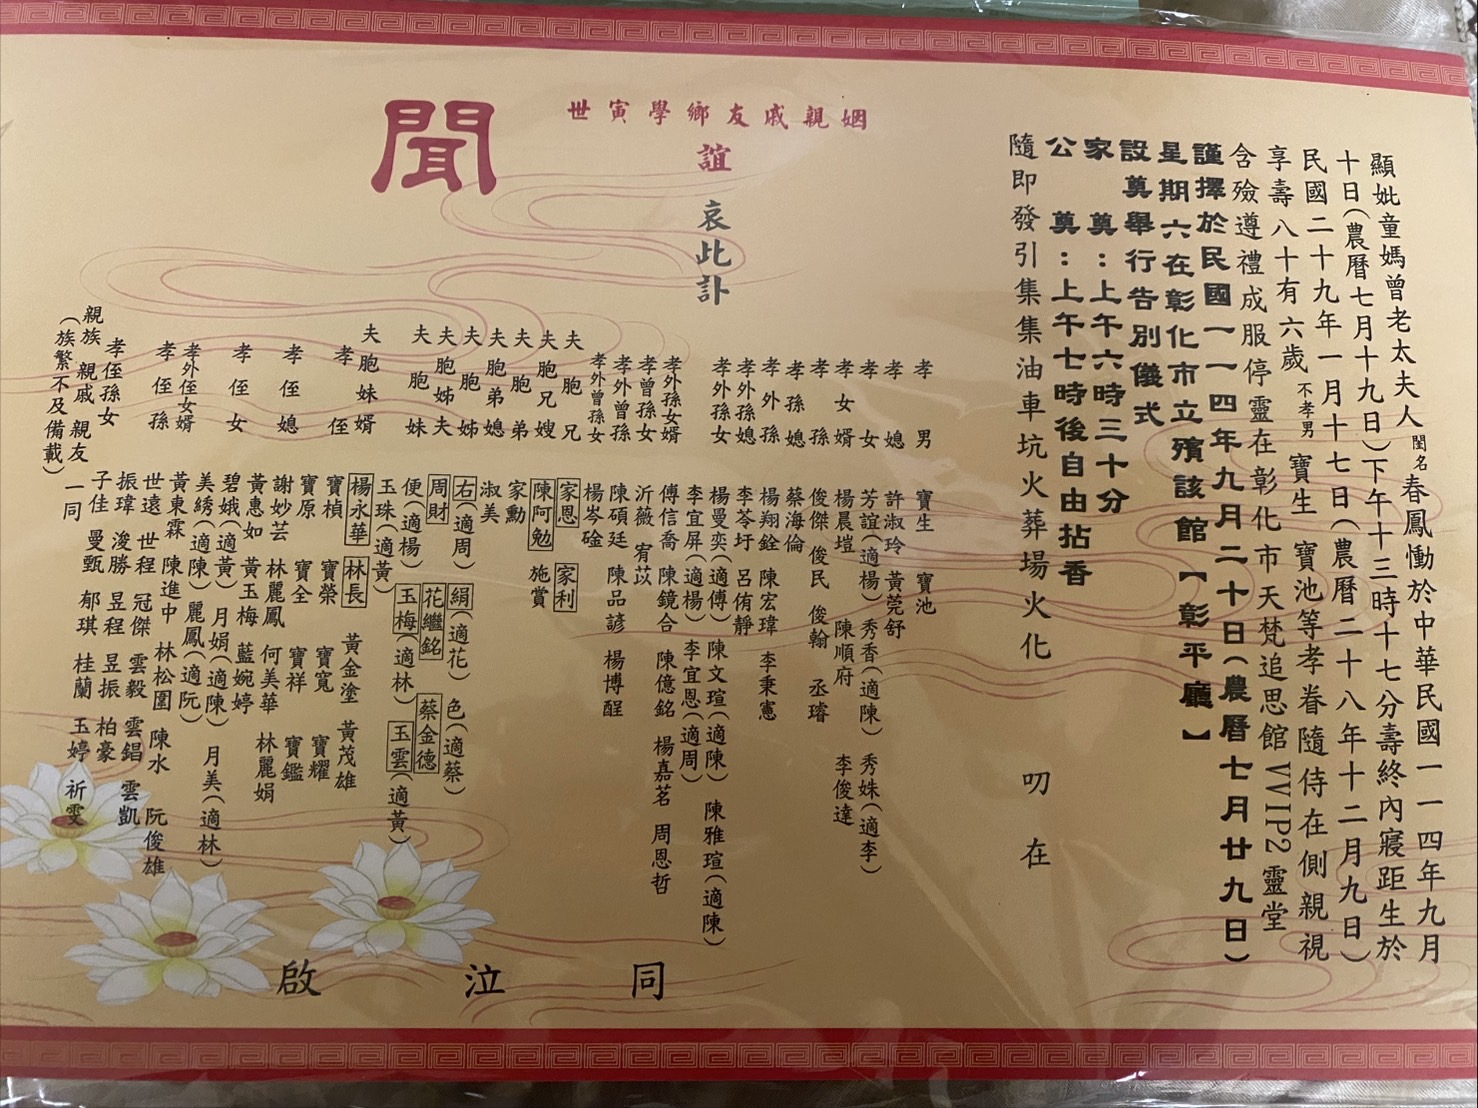 顯妣童媽曾老太夫人閨名春鳳慟於中華民國一一四年九月
十日(農曆七月十九日)下午十三時十七分壽終內寢距生於
民國二十九年一月十七日(農曆二十八年十二月九日)
享壽八十有六歲不孝男寶生 寶池等孝眷隨侍在側親視
含殮遵禮成服停靈在彰化市天梵追思館VVIP2靈堂
謹擇於民國一一四年九月二十日(農曆七月廿九日)
星期六在彰化市立殯該館【彰平廳】
設奠舉行告別儀式
家 奠:上午六時三十分
公 奠:上午七時後自由拈香
隨即發引集集油車坑火葬場火化 叨在
姻親戚友鄉學寅世
誼
哀此訃
聞
孝男 寶生 寶池
孝媳 許淑玲 黃莞舒
孝女 芳誼(適楊) 秀香(適陳) 秀姝(適李)
孝女婿 楊晨塏 陳順府 李俊達
孝孫 俊傑 俊民 俊翰 丞璿
孝孫媳 蔡海倫
孝外孫 楊翔銓 陳宏瑋 李秉憲
孝外孫媳 李苓圩 呂侑靜
孝外孫女 楊曼奕(適傅) 陳文瑄(適陳) 陳雅瑄(適陳)
李宜屏(適楊) 李宜恩(適周)
孝外孫女婿 傅信喬 陳鏡合 陳億銘 楊嘉茗 周恩哲
孝曾孫女 沂薇 宥苡
孝外曾孫 陳碩廷 陳品諺 楊博酲
孝外曾孫女 楊岑磑
夫胞兄 家恩 家利
夫胞兄嫂 陳阿勉 施賞
夫胞弟 家勳
夫胞弟媳 淑美
夫胞姊 右(適周) 絹(適花) 色(適蔡)
夫胞姊夫 周財 花繼銘 蔡金德
夫胞妹 便(適楊) 玉梅(適林) 玉雲(適黃)
玉珠(適黃)
夫胞妹婿 楊永華 林長 黃金塗 黃茂雄
孝侄 寶楨 寶榮 寶寬 寶耀
寶原 寶全 寶祥 寶鑑
孝侄媳 謝妙芸 林麗鳳 何美華 林麗娟
黃惠如 黃玉梅 藍婉婷
孝侄女 碧娥(適黃) 月娟(適陳) 月美(適林)
美綉(適陳) 麗鳳(適阮)
孝外侄女婿 黃東霖 陳進中 林松圍 陳水 阮俊雄
孝侄孫 世遠 世程 冠傑 雲毅 雲錩 雲凱
振瑋 浚勝 昱程 昱振 柏豪
孝侄孫女 子佳 曼甄 郁琪 桂蘭 玉婷 祈雯
親族 親戚 親友 一同
(族繁不及備載)
同 泣 啟